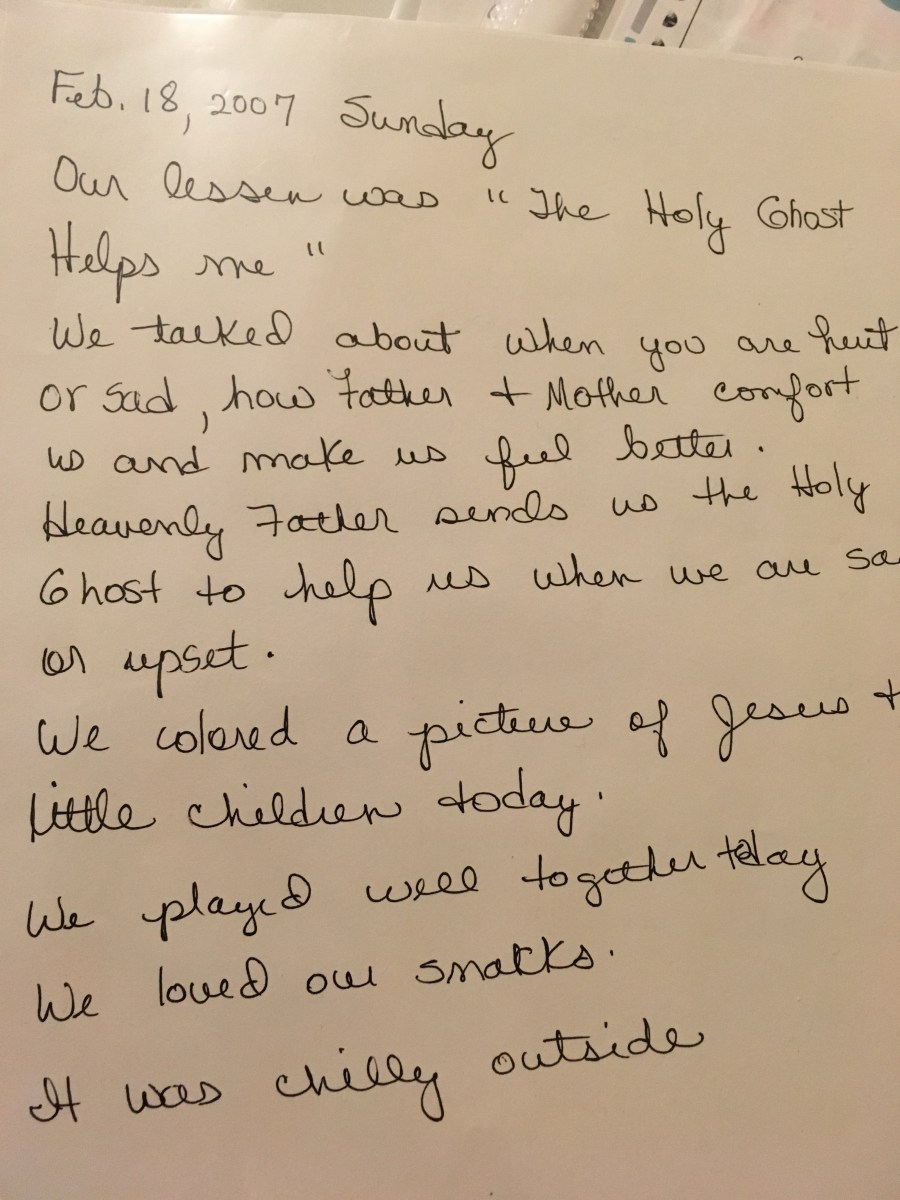 Feb. 18, 2007 Sunday
Our lessen was "The Holy Ghost
Helps me"
We talked about when you are hurt
or sad, how Father + Mother comfort
us and make us feel better.
Heavenly Father sends us the Holy
Ghost to help us when we are sa
or upset.
We colored a picture of Jesus +
little children today.
We played well together today
We loved our snacks.
It was chilly outside